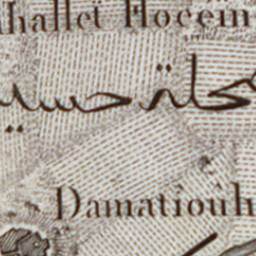 hallet Hocein
محلة حسي
Damatiouh